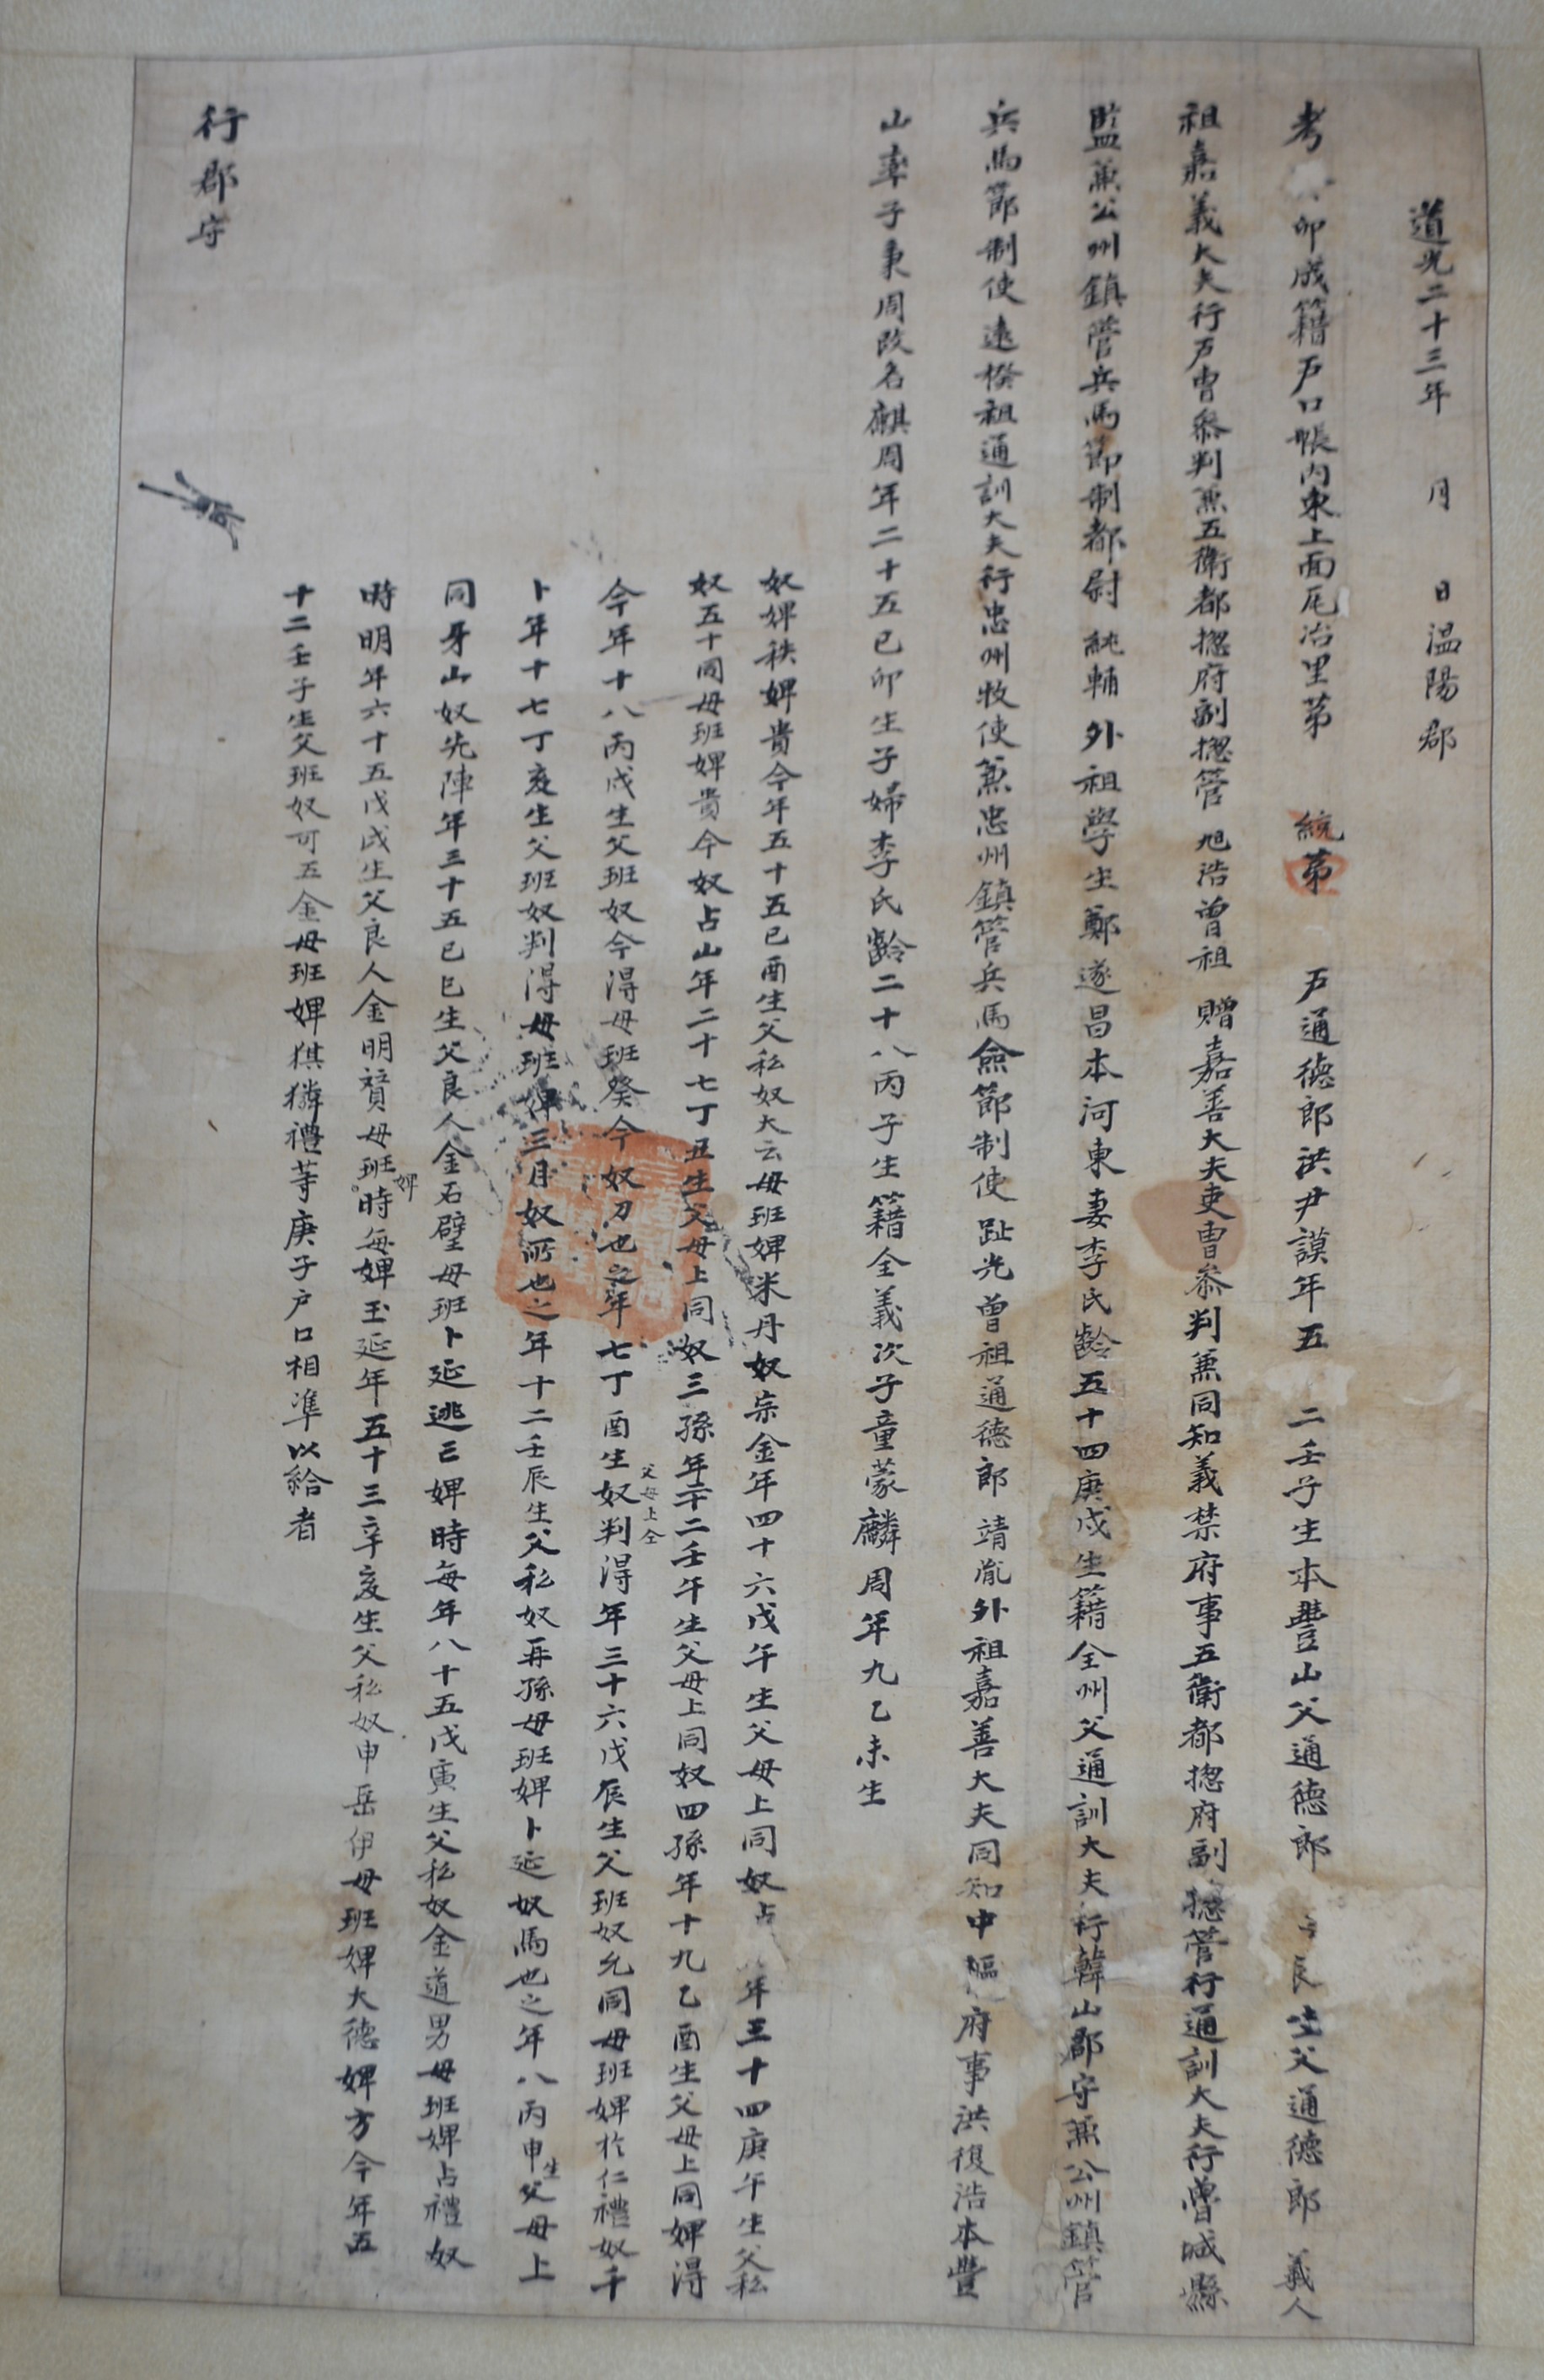 道光二十三年 月 日温陽郡
考 卯成籍戶口帳内東上面瓦冶里第 統第 戶通德郎洪尹謨年五 二壬子生本豊山父通德郎 生父通德郎 義人
祖嘉義大夫行戶曹叅判兼五衛都摠府副摠管 旭浩曾祖 贈嘉善大夫吏曹叅判兼同知義禁府事五衛都摠府副摠管行通訓大夫行 城縣
監兼公州鎮管兵馬節制都尉 純輔 外祖學生鄭遂昌本河東妻李氏齡五十四庚戌生籍全州父通訓大夫行韓山郡守兼公州鎮管
兵馬節制使遠揆祖通訓大夫行忠州牧使兼忠州鎮管兵馬僉節制使 趾光 曾祖通德郎 靖胤外祖嘉善大夫同知中樞府事洪復浩本豊
山率子秉周改名麒周年二十五己卯生子婦李氏齡二十八丙子生籍全義次子童蒙麟周年九乙未生
奴婢秩婢貴今年五十五己酉生父私奴大云母班婢米丹奴宗金年四十六戊午生父母上同奴占 年三十四庚午生父私
奴五十同母班婢貴今奴占山年二十七丁丑生父母上同奴三孫年二十二壬午生父母上同奴四孫年十九乙酉生父母上同婢得
今年十八丙戌生父班奴今得母班癸今奴刀也之年七丁酉生父母上仝奴判得年三十六戊辰生父班奴允同母班婢於仁禮奴千
卜年十七丁亥生父班奴判得母班婢三月奴 也之年十二壬辰生父私奴再孫母班婢卜延奴馬也之年八丙申生父母上
同牙山奴先陣年三十五己巳生父良人金石壁母班卜延逃亡婢時每年八十五戊寅生父私奴金道男母班婢占禮奴
時明年六十五戊戌生父良人金明贇母班婢時每婢玉延年五十三辛亥生父私奴申岳伊母班婢大德婢方今年五
十二壬子生父班奴可五金母班婢猉獜禮等庚子戶口相準以給者
行郡守